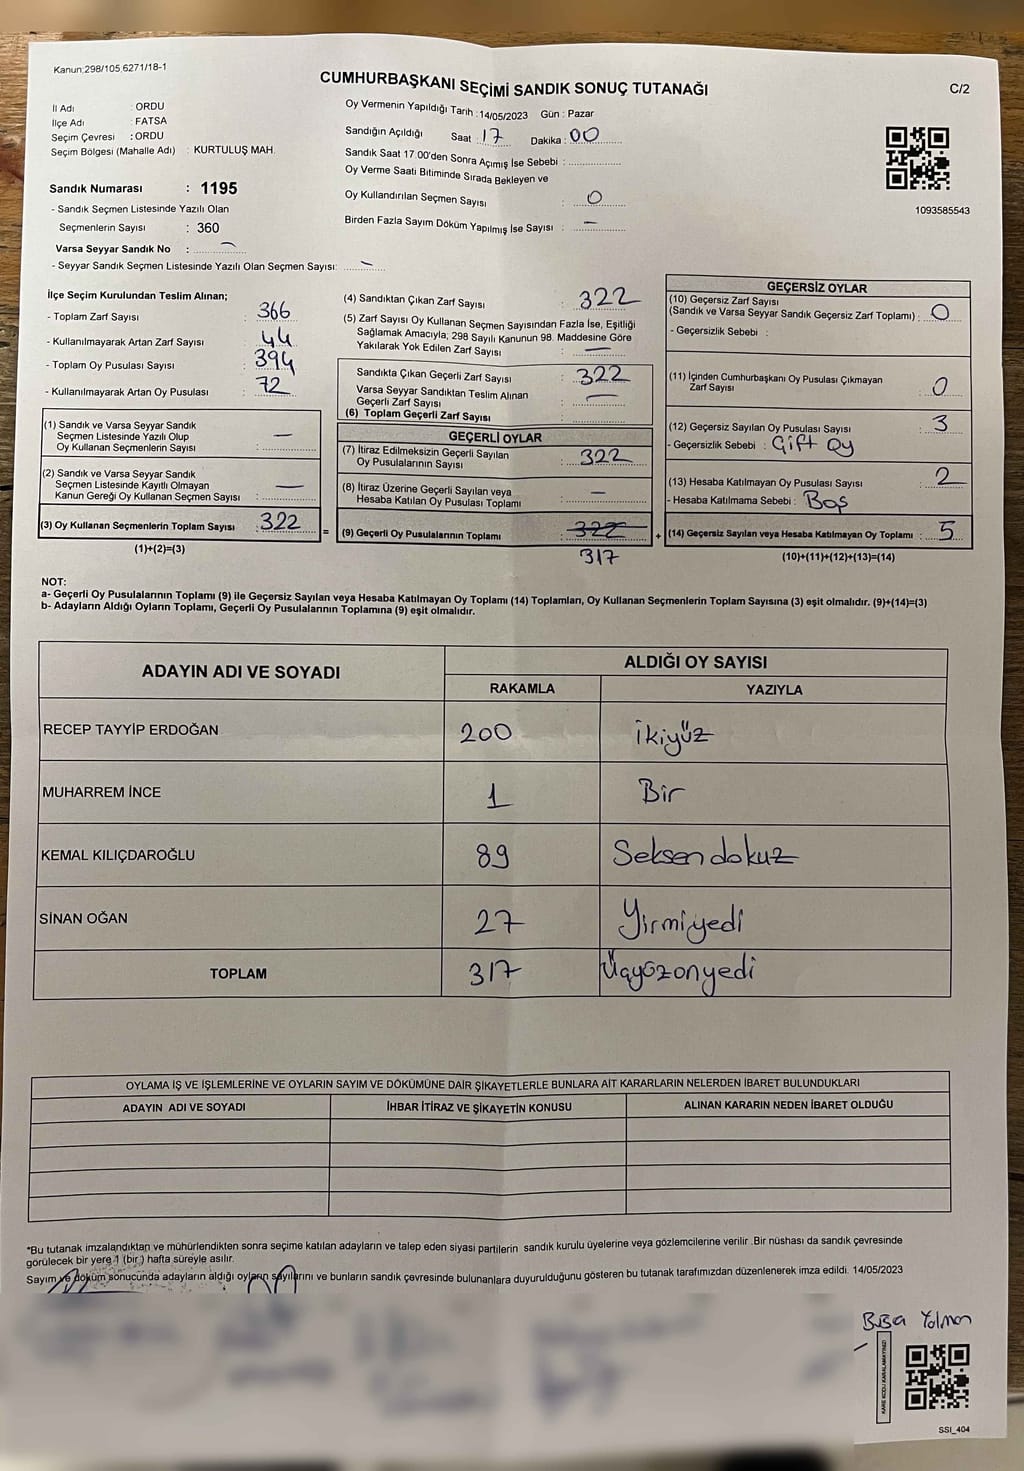 Kanun;298/105,6271/18-1
CUMHURBAŞKANI SEÇİMİ SANDIK SONUÇ TUTANAĞI
C/2
İl Adı : ORDU
İlçe Adı : FATSA
Seçim Çevresi : ORDU
Seçim Bölgesi (Mahalle Adı) : KURTULUŞ MAH.
Sandık Numarası : 1195
- Sandık Seçmen Listesinde Yazılı Olan
Seçmenlerin Sayısı : 360
Varsa Seyyar Sandık No : –
- Seyyar Sandık Seçmen Listesinde Yazılı Olan Seçmen Sayısı: –
Oy Vermenin Yapıldığı Tarih :14/05/2023 Gün : Pazar
Sandığın Açıldığı Saat : 17 Dakika : 00
Sandık Saat 17:00'den Sonra Açımış İse Sebebi :
Oy Verme Saati Bitiminde Sırada Bekleyen ve
Oy Kullandırılan Seçmen Sayısı : 0
Birden Fazla Sayım Döküm Yapılmış İse Sayısı : –
1093585543
İlçe Seçim Kurulundan Teslim Alınan;
- Toplam Zarf Sayısı : 366
- Kullanılmayarak Artan Zarf Sayısı : 44
- Toplam Oy Pusulası Sayısı : 394
- Kullanılmayarak Artan Oy Pusulası : 72
(1) Sandık ve Varsa Seyyar Sandık
Seçmen Listesinde Yazılı Olup
Oy Kullanan Seçmenlerin Sayısı : –
(2) Sandık ve Varsa Seyyar Sandık
Seçmen Listesinde Kayıtlı Olmayan
Kanun Gereği Oy Kullanan Seçmen Sayısı : –
(3) Oy Kullanan Seçmenlerin Toplam Sayısı : 322
(1)+(2)=(3)
=
(4) Sandıktan Çıkan Zarf Sayısı : 322
(5) Zarf Sayısı Oy Kullanan Seçmen Sayısından Fazla İse, Eşitliği
Sağlamak Amacıyla; 298 Sayılı Kanunun 98. Maddesine Göre
Yakılarak Yok Edilen Zarf Sayısı : –
Sandıkta Çıkan Geçerli Zarf Sayısı : 322
Varsa Seyyar Sandıktan Teslim Alınan
Geçerli Zarf Sayısı : –
(6) Toplam Geçerli Zarf Sayısı :
GEÇERLİ OYLAR
(7) İtiraz Edilmeksizin Geçerli Sayılan
Oy Pusulalarının Sayısı : 322
(8) İtiraz Üzerine Geçerli Sayılan veya
Hesaba Katılan Oy Pusulası Toplamı : –
(9) Geçerli Oy Pusulalarının Toplamı : 322
317
+
GEÇERSİZ OYLAR
(10) Geçersiz Zarf Sayısı
(Sandık ve Varsa Seyyar Sandık Geçersiz Zarf Toplamı) : 0
- Geçersizlik Sebebi :
(11) İçinden Cumhurbaşkanı Oy Pusulası Çıkmayan
Zarf Sayısı : 0
(12) Geçersiz Sayılan Oy Pusulası Sayısı : 3
- Geçersizlik Sebebi : Çift Oy
(13) Hesaba Katılmayan Oy Pusulası Sayısı : 2
- Hesaba Katılmama Sebebi : Boş
(14) Geçersiz Sayılan veya Hesaba Katılmayan Oy Toplamı : 5
(10)+(11)+(12)+(13)=(14)
NOT:
a- Geçerli Oy Pusulalarının Toplamı (9) ile Geçersiz Sayılan veya Hesaba Katılmayan Oy Toplamı (14) Toplamları, Oy Kullanan Seçmenlerin Toplam Sayısına (3) eşit olmalıdır. (9)+(14)=(3)
b- Adayların Aldığı Oyların Toplamı, Geçerli Oy Pusulalarının Toplamına (9) eşit olmalıdır.
ADAYIN ADI VE SOYADI
ALDIĞI OY SAYISI
RAKAMLA YAZIYLA
RECEP TAYYİP ERDOĞAN 200 İkiyüz
MUHARREM İNCE 1 Bir
KEMAL KILIÇDAROĞLU 89 Seksen dokuz
SİNAN OĞAN 27 Yirmiyedi
TOPLAM 317 Üçyüzonyedi
OYLAMA İŞ VE İŞLEMLERİNE VE OYLARIN SAYIM VE DÖKÜMÜNE DAİR ŞİKAYETLERLE BUNLARA AİT KARARLARIN NELERDEN İBARET BULUNDUKLARI
ADAYIN ADI VE SOYADI İHBAR İTİRAZ VE ŞİKAYETİN KONUSU ALINAN KARARIN NEDEN İBARET OLDUĞU
*Bu tutanak imzalandıktan ve mühürlendikten sonra seçime katılan adayların ve talep eden siyasi partilerin sandık kurulu üyelerine veya gözlemcilerine verilir .Bir nüshası da sandık çevresinde
görülecek bir yere 1 (bir) hafta süreyle asılır.
Sayım ve döküm sonucunda adayların aldığı oyların sayılarını ve bunların sandık çevresinde bulunanlara duyurulduğunu gösteren bu tutanak tarafımızdan düzenlenerek imza edildi. 14/05/2023
KARE KODU KARALAMAYINIZ!
SSI_404